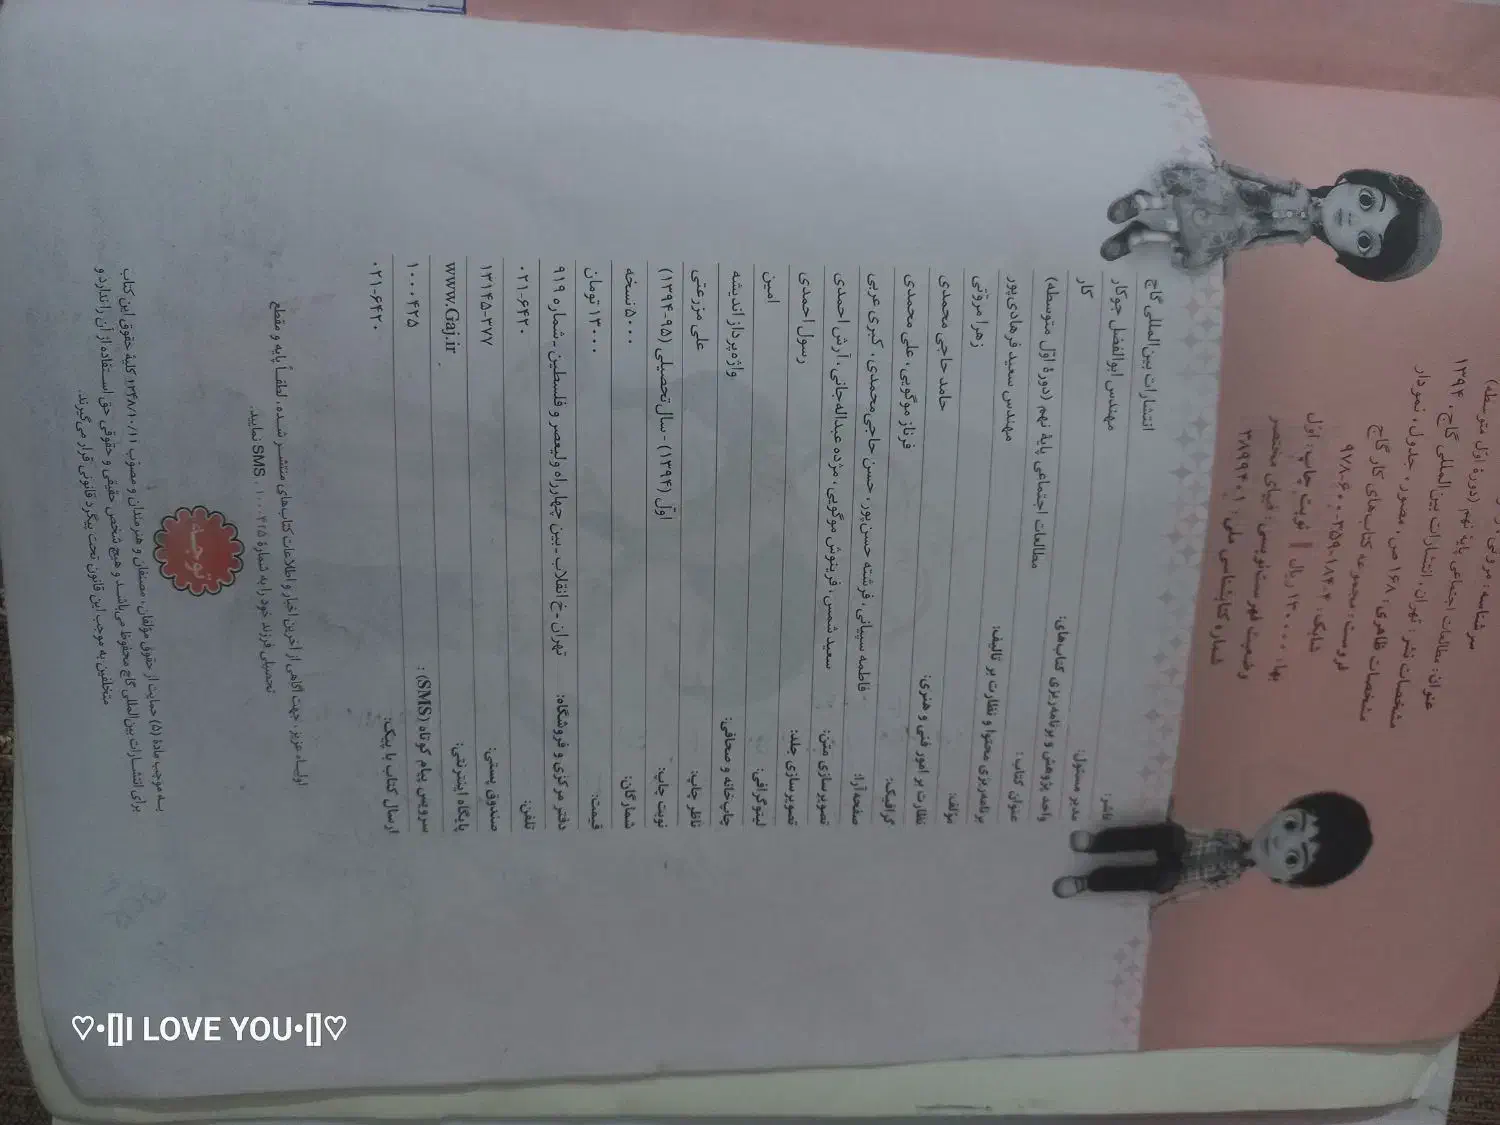 سرشناسه: مروتی، ز
عنوان: مطالعات اجتماعی پایهٔ نهم (دورهٔ اوّل متوسطه)
مشخصات نشر: تهران، انتشارات بین‌المللی گاج، ۱۳۹۴
مشخصات ظاهری: ۱۶۸ ص، مصور، جدول، نمودار
فروست: مجموعه کتاب‌های کار گاج
شابک: ۴-۱۸۴-۳۵۹-۶۰۰-۹۷۸
بها: ۱۳۰۰۰۰ ریال | نوبت چاپ: اوّل
وضعیت فهرست‌نویسی: فیپای مختصر
شماره کتابشناسی ملی: ۳۸۹۹۴۰۱
ناشر: انتشارات بین‌المللی گاج
مدیر مسئول: مهندس ابوالفضل جوکار
واحد پژوهش و برنامه‌ریزی کتاب‌های: کار
عنوان کتاب: مطالعات اجتماعی پایهٔ نهم (دورهٔ اوّل متوسطه)
برنامه‌ریزی محتوا و نظارت بر تألیف: مهندس سعید فرهادی‌پور
مؤلف: زهرا مروّتی
نظارت بر امور فنی و هنری: حامد حاجی محمدی
گرافیک: فرناز موگویی، علی محمدی
صفحه‌آرا: فاطمه سیبانی، فرشته حسن‌پور، حسن حاجی‌محمدی، کبری عربی
تصویرسازی متن: سعید شمس، فرینوش موگویی، مژده عبداله‌جانی، آرش احمدی
تصویرسازی جلد: رسول احمدی
لیتوگرافی: امین
چاپ‌خانه و صحافی: واژه‌پرداز اندیشه
ناظر چاپ: علی مزرعتی
نوبت چاپ: اوّل (۱۳۹۴) - سال تحصیلی (۹۵-۱۳۹۴)
شمارگان: ۵۰۰۰ نسخه
قیمت: ۱۳۰۰۰ تومان
دفتر مرکزی و فروشگاه: تهران - خ انقلاب - بین چهارراه ولیعصر و فلسطین - شماره ۹۱۹
تلفن: ۰۲۱-۶۴۲۰
صندوق پستی: ۱۳۱۴۵-۳۷۷
پایگاه اینترنتی: www.Gaj.ir
سرویس پیام کوتاه (SMS): ۱۰۰۰۴۲۵
ارسال کتاب با پیک: ۰۲۱-۶۴۲۰
اولیاء عزیز، جهت آگاهی از آخرین اخبار و اطلاعات کتاب‌های منتشر شده، لطفاً پایه و مقطع
تحصیلی فرزند خود را به شمارهٔ ۱۰۰۰۴۲۵، SMS نمایید.
توجه
به موجب مادهٔ (۵) حمایت از حقوق مؤلفان، مصنفان و هنرمندان و مصوب ۱۳۴۸/۱۰/۱۱ کلیهٔ حقوق این کتاب
برای انتشارات بین‌المللی گاج محفوظ می‌باشد و هیچ شخص حقیقی و حقوقی حق استفاده از آن را ندارد و
متخلفین به موجب این قانون تحت پیگرد قانونی قرار می‌گیرند.
♡•[]I LOVE YOU•[]♡